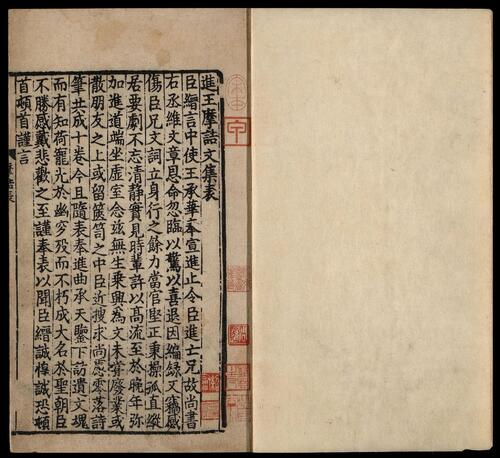 進王摩詰文集表
臣縉言中使王承華奉宣進止令臣進亡兄故尚書
右丞維文章恩命忽臨以驚以喜退因編録又竊感
傷臣兄文詞立身行之餘力當官堅正秉操孤直縱
居要劇不忘清静實見時輩許以髙流至於晚年弥
加進道端坐虚室念兹無生乗興為文未嘗廢業或
散朋友之上或留篋笥之中臣近搜求尚慮零落詩
筆共成十卷今且隨表奉進曲承天鑒下訪遺文魂
而有知荷寵光於幽穸殁而不朽成大名於聖朝臣
不勝感戴悲歡之至謹奉表以聞臣縉誠惶誠恐頓
首頓首謹言